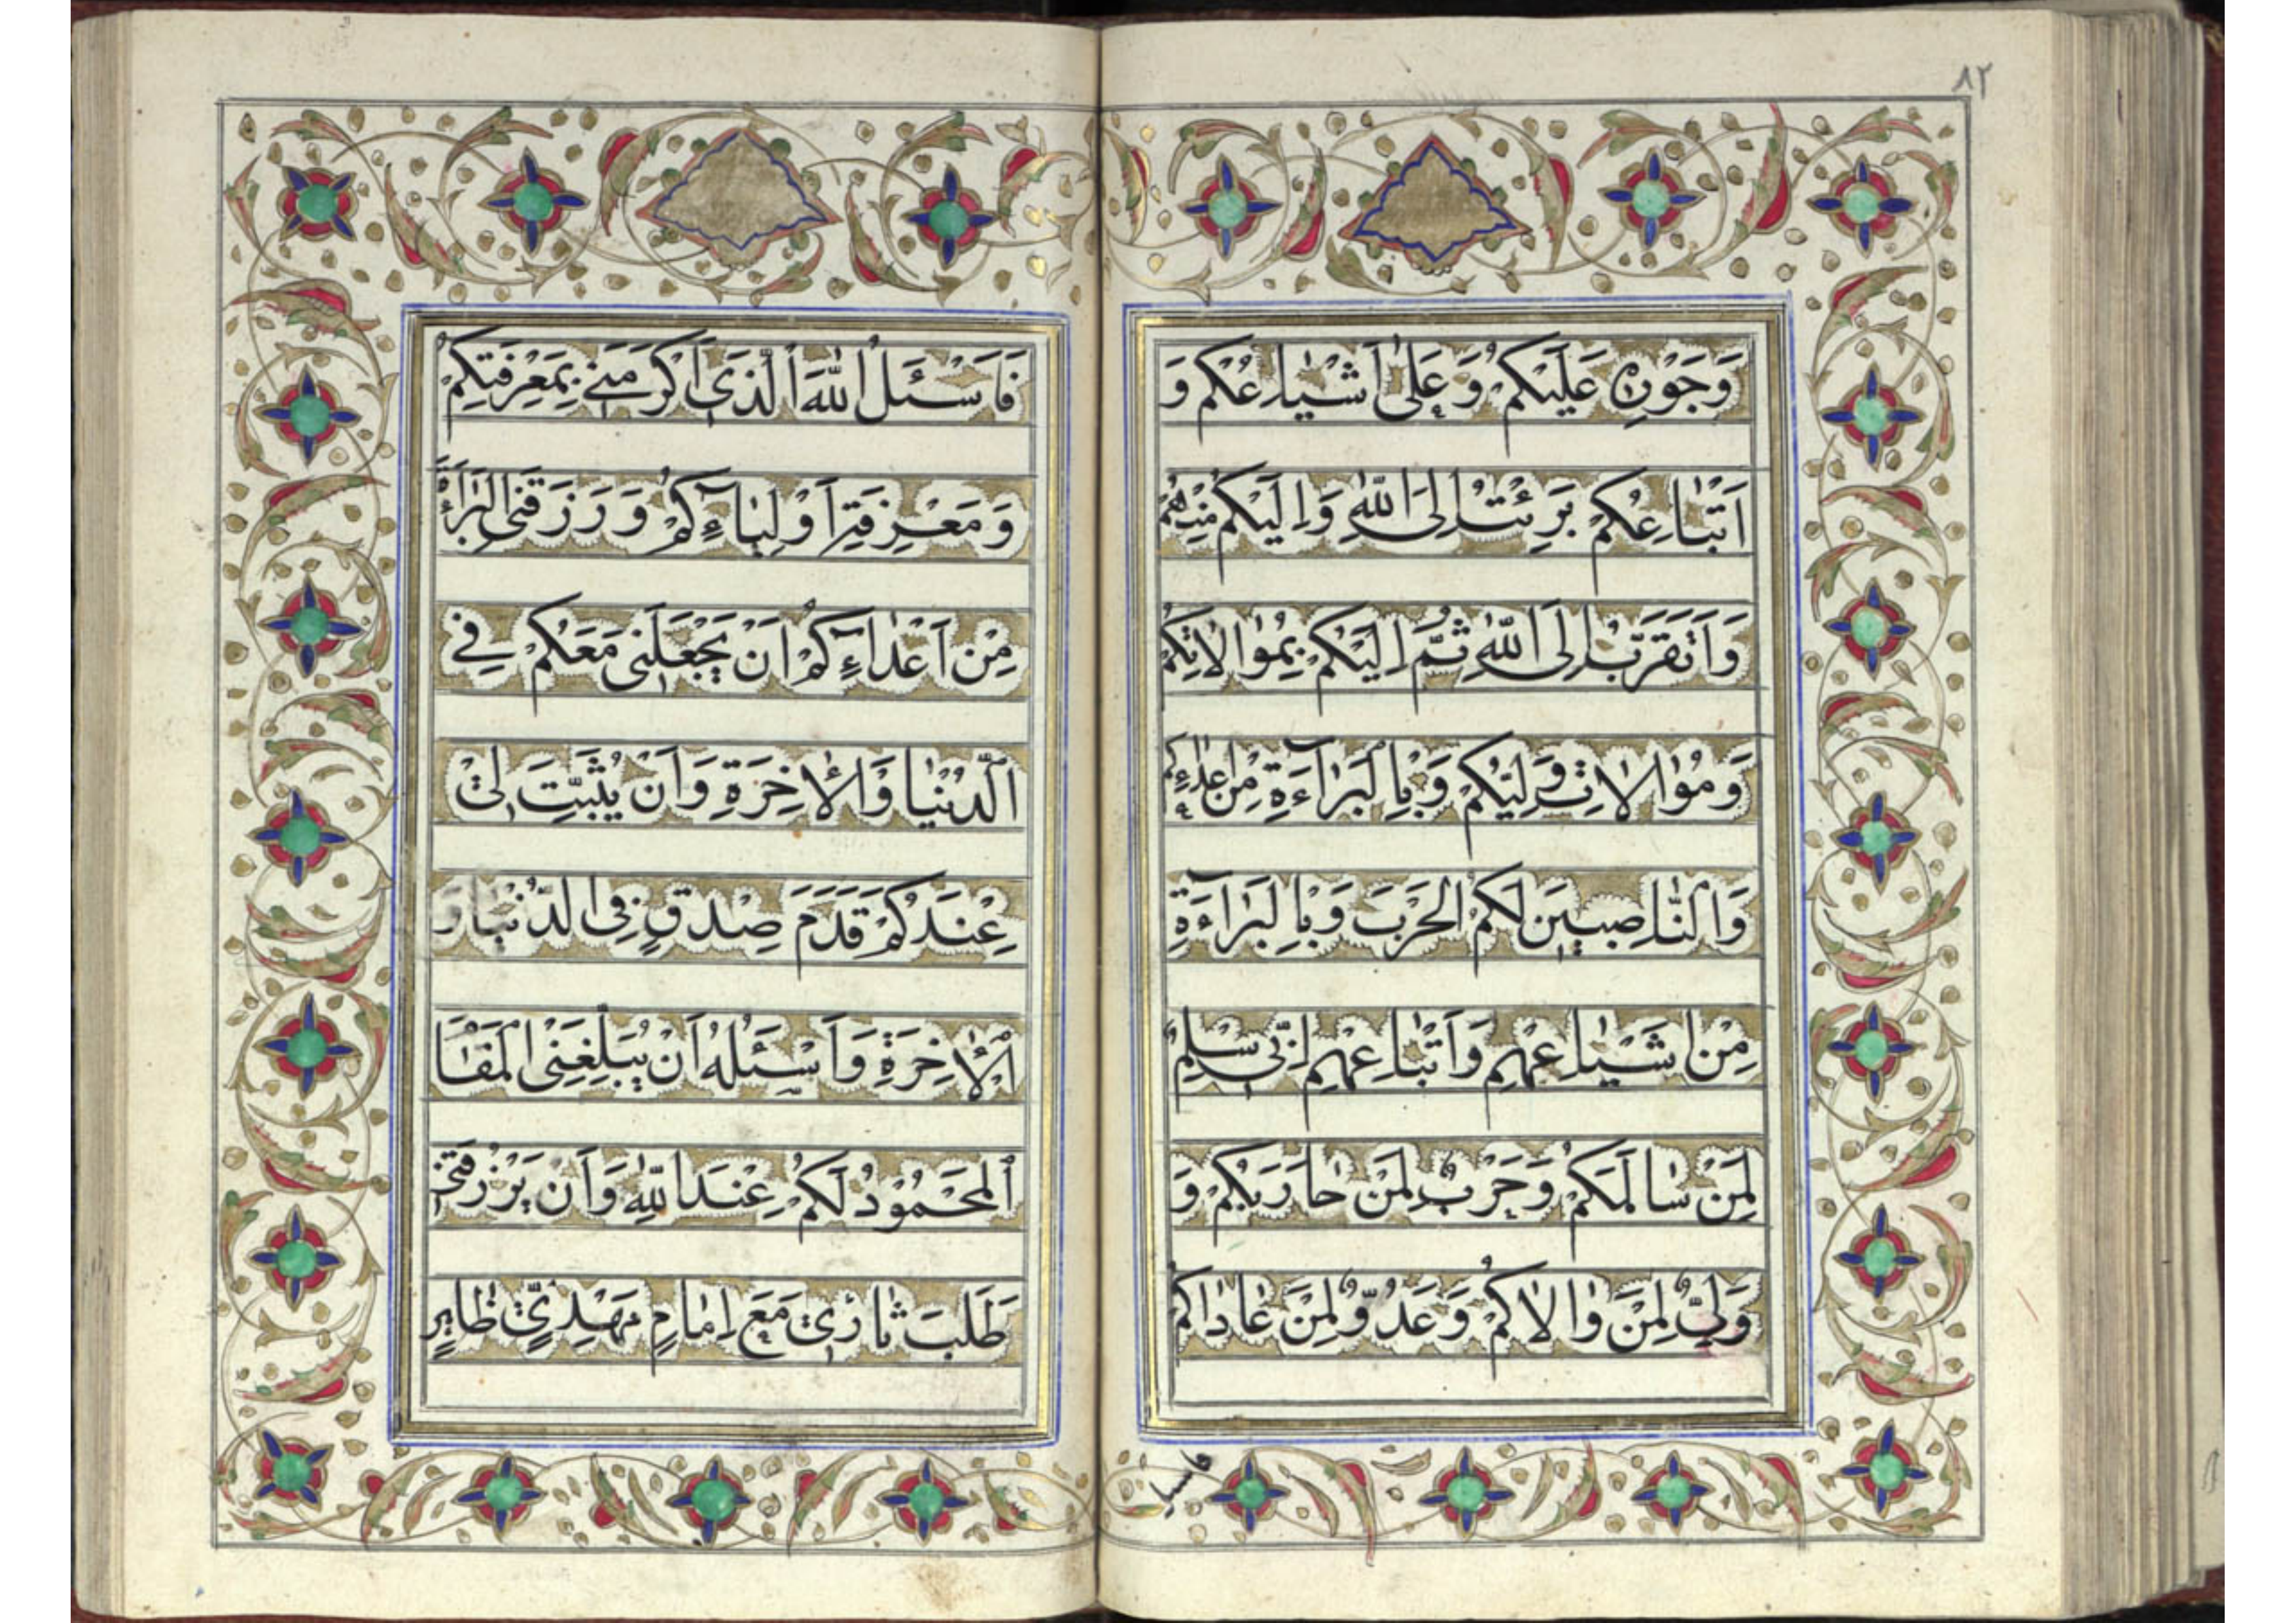 ٨٢
وَجَوْرِهِ عَلَيْكُمْ وَعَلىٰ اَشْيٰاعِكُمْ وَ
اَتْبٰاعِكُمْ بَرِئْتُ اِلَى اللهِ وَاِلَيْكُمْ مِنْهُمْ
وَاَتَقَرَّبُ اِلَى اللهِ ثُمَّ اِلَيْكُمْ بِمُوٰالاتِكُمْ
وَمُوٰالاتِ وَلِيِّكُمْ وَبِالْبَرٰآءَةِ مِنْ اَعْدٰآءِكُمْ
وَالنّٰاصِبينَ لَكُمُ الْحَرْبَ وَبِالْبَرٰآءَةِ
مِنْ اَشْيٰاعِهِمْ وَاَتْبٰاعِهِمْ اِنّى سِلْمٌ
لِمَنْ سٰالَمَكُمْ وَحَرْبٌ لِمَنْ حٰارَبَكُمْ وَ
وَلِىٌّ لِمَنْ وٰالاكُمْ وَعَدُوٌّ لِمَنْ عٰادٰاكُمْ
فاسئل
فَاَسْئَلُ اللهَ الَّذى اَكْرَمَنى بِمَعْرِفَتِكُمْ
وَمَعْرِفَةِ اَوْلِيٰآءِكُمْ وَرَزَقَنِى الْبَرٰآءَةَ
مِنْ اَعْدٰآءِكُمْ اَنْ يَجْعَلَنى مَعَكُمْ فِى
الدُّنْيٰا وَالْاٰخِرَةِ وَاَنْ يُثَبِّتَ لى
عِنْدَكُمْ قَدَمَ صِدْقٍ فِى الدُّنْيٰا وَ
الْاٰخِرَةِ وَاَسْئَلُهُ اَنْ يُبَلِّغَنِى الْمَقٰامَ
الْمَحْمُودَ لَكُمْ عِنْدَ اللهِ وَاَنْ يَرْزُقَنى
طَلَبَ ثٰارى مَعَ اِمٰامٍ مَهْدِىٍّ ظٰاهِرٍ